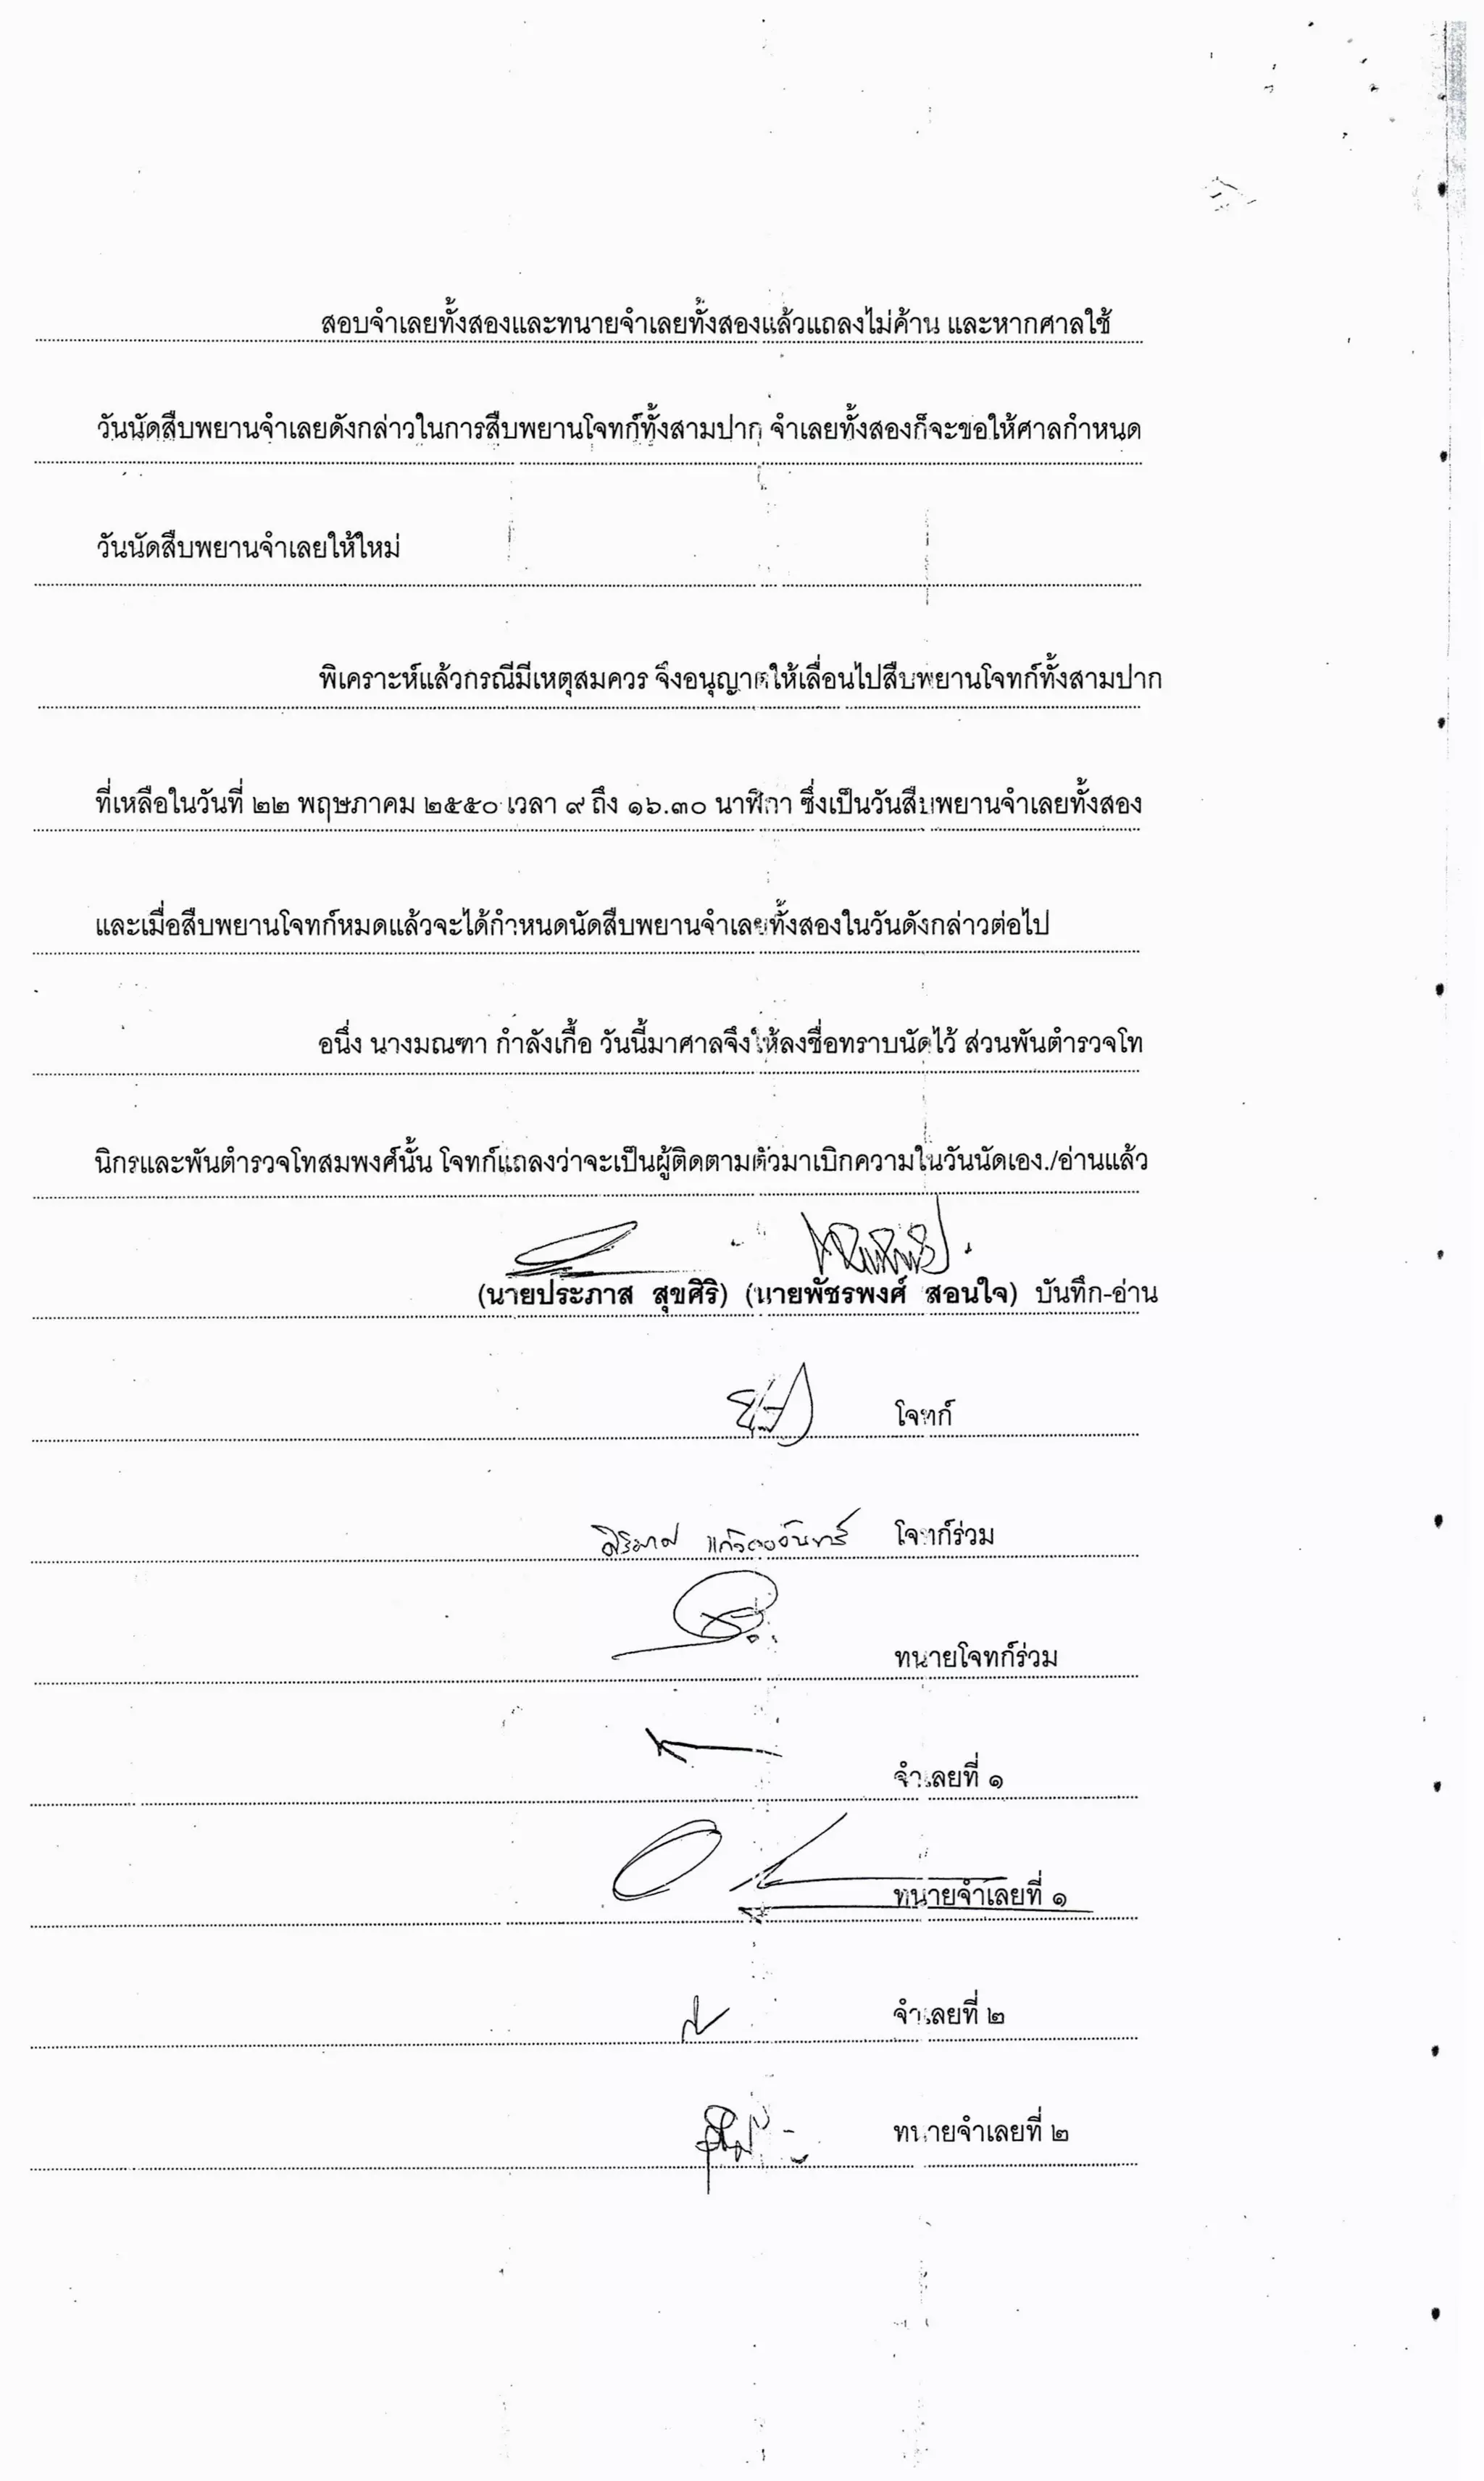 สอบจำเลยทั้งสองและทนายจำเลยทั้งสองแล้วแถลงไม่ค้าน และหากศาลใช้
วันนัดสืบพยานจำเลยดังกล่าวในการสืบพยานโจทก์ทั้งสามปาก จำเลยทั้งสองก็จะขอให้ศาลกำหนด
วันนัดสืบพยานจำเลยให้ใหม่
พิเคราะห์แล้วกรณีมีเหตุสมควร จึงอนุญาตให้เลื่อนไปสืบพยานโจทก์ทั้งสามปาก
ที่เหลือในวันที่ ๒๒ พฤษภาคม ๒๕๕๐ เวลา ๙ ถึง ๑๖.๓๐ นาฬิกา ซึ่งเป็นวันสืบพยานจำเลยทั้งสอง
และเมื่อสืบพยานโจทก์หมดแล้วจะได้กำหนดนัดสืบพยานจำเลยทั้งสองในวันดังกล่าวต่อไป
อนึ่ง นางมณฑา กำลังเกื้อ วันนี้มาศาลจึงให้ลงชื่อทราบนัดไว้ ส่วนพันตำรวจโท
นิกรและพันตำรวจโทสมพงศ์นั้น โจทก์แถลงว่าจะเป็นผู้ติดตามตัวมาเบิกความในวันนัดเอง./อ่านแล้ว
(นายประภาส สุขศิริ) (นายพัชรพงศ์ สอนใจ) บันทึก-อ่าน
โจทก์
โจทก์ร่วม
ทนายโจทก์ร่วม
จำเลยที่ ๑
ทนายจำเลยที่ ๑
จำเลยที่ ๒
ทนายจำเลยที่ ๒